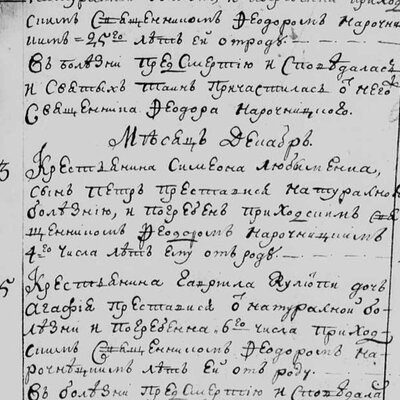 скимъ Священникомъ Ѳеодоромъ Нарочниц
кимъ = 25го лѣтъ ей отродъ.
Въ болезни Пред Смертію и Сповѣдалась
и Святыхъ Таинъ Причастилась ѿ него
Священника Ѳеодора Нарочницкого.
Мѣсяцъ Декабрь.
3 Крестьянина Симеона
сынъ Петръ Преставися Натуралною
болѣзнію, и погребенъ Приходскимъ Свя
щенникомъ Ѳеодоромъ Нарочницкимъ
4го числа лѣтъ ему отъ роду
5 Крестьянина Гаврила дочъ
Агафія Преставися ѿ натуралной бо
лѣзни и Погребенна 6го числа Приход
скимъ Священникомъ Ѳеодоромъ На
рочницкимъ лѣтъ ей ѿ роду
Въ болезни Пред Смертію и Сповѣдала